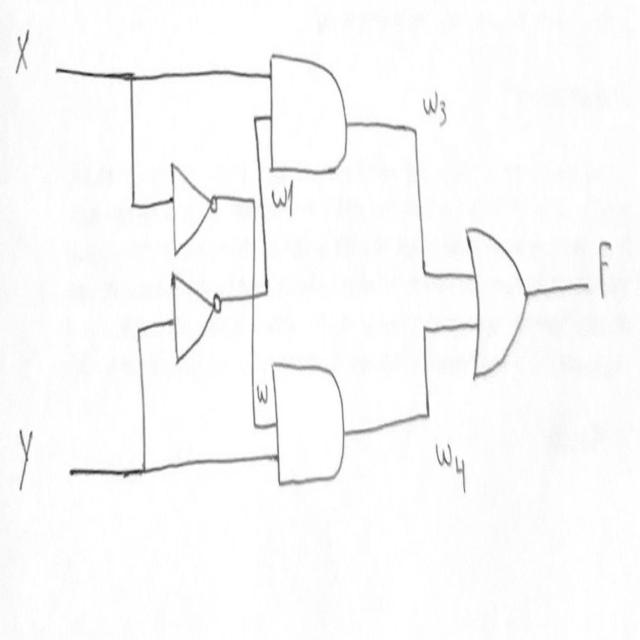 X
W3
W1
F
W
Y
W4